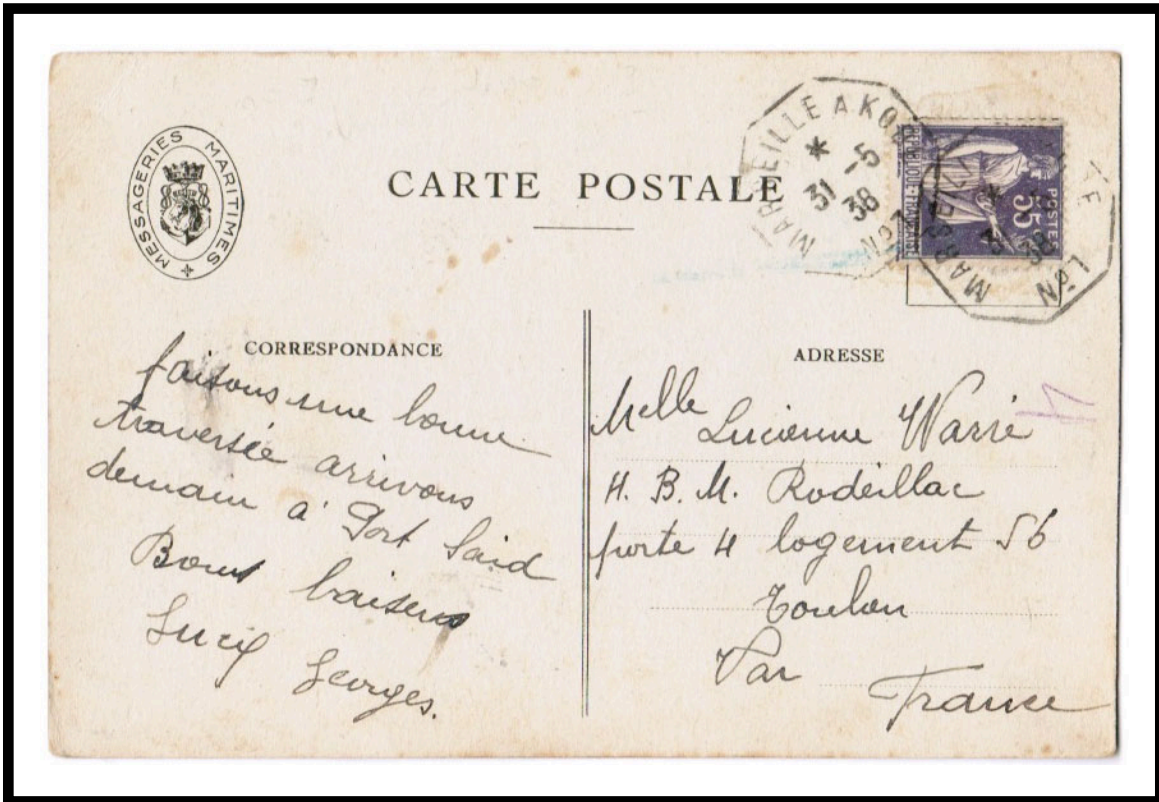 MESSAGERIES MARITIMES
CARTE POSTALE
MARSEILLE A KO
31 -5
38
LON
REPUBLIQUE FRANÇAISE
POSTES
55
MARSEILL
38
LON
CORRESPONDANCE
faisons une bonne
traversée arrivons
demain à Port Said
Bons baisers
Lucy Georges.
ADRESSE
Melle Lucienne Warré
H. B. M. Rodeillac
porte 4 logement 56
Toulon
Var
France